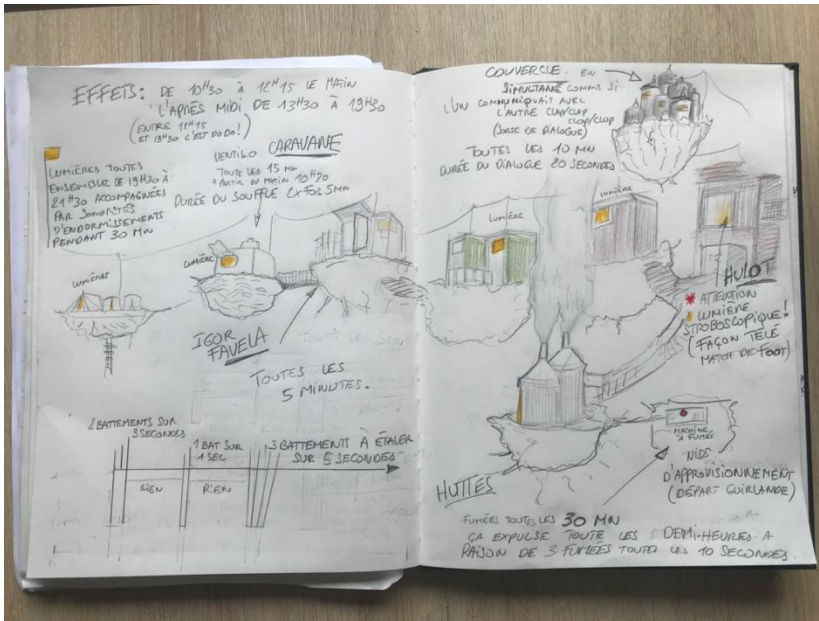 EFFETS: DE 10H30 À 12H15 LE MATIN
L'APRÈS MIDI DE 13H30 À 19H30
(ENTRE 12H15
ET 13H30 C'EST DODO!)
LUMIÈRES TOUTES
ENSEMBLE DE 19H30 À
21H30 ACCOMPAGNÉES
PAR SONORITÉS
D'ENDORMISSEMENTS
PENDANT 30 MN
VENTILO CARAVANE
TOUTE LES 15 MN
À PARTIR DU MATIN 10H30
DURÉE DU SOUFFLE 2X FOIS 5MN
LUMIÈRES
LUMIÈRE
IGOR
FAVELA
TOUTES LES
5 MINUTES.
2 BATTEMENTS SUR
3 SECONDES
1 BAT SUR
1 SEC
3 BATTEMENTS À ÉTALER
SUR 5 SECONDES
RIEN
RIEN
COUVERCLE EN
SIMULTANÉ COMME SI
L'UN COMMUNIQUAIT AVEC
L'AUTRE CLAP/CLAP
CLOP/CLOP
(SORTE DE DIALOGUE)
TOUTES LES 10 MN
DURÉE DU DIALOGUE 20 SECONDES
LUMIÈRE
LUMIÈRE
LUMIÈRE
HULOT
ATTENTION
LUMIÈRE
STROBOSCOPIQUE!
(FAÇON TÉLÉ
MATCH DE FOOT)
MACHINE
À FUMÉE
NIDS
D'APPROVISIONNEMENT
(DÉPART GUIRLANDE)
HUTTES
FUMÉES TOUTES LES 30 MN
ÇA EXPULSE TOUTE LES DEMI-HEURES À
RAISON DE 3 FUMÉES TOUTES LES 10 SECONDES.